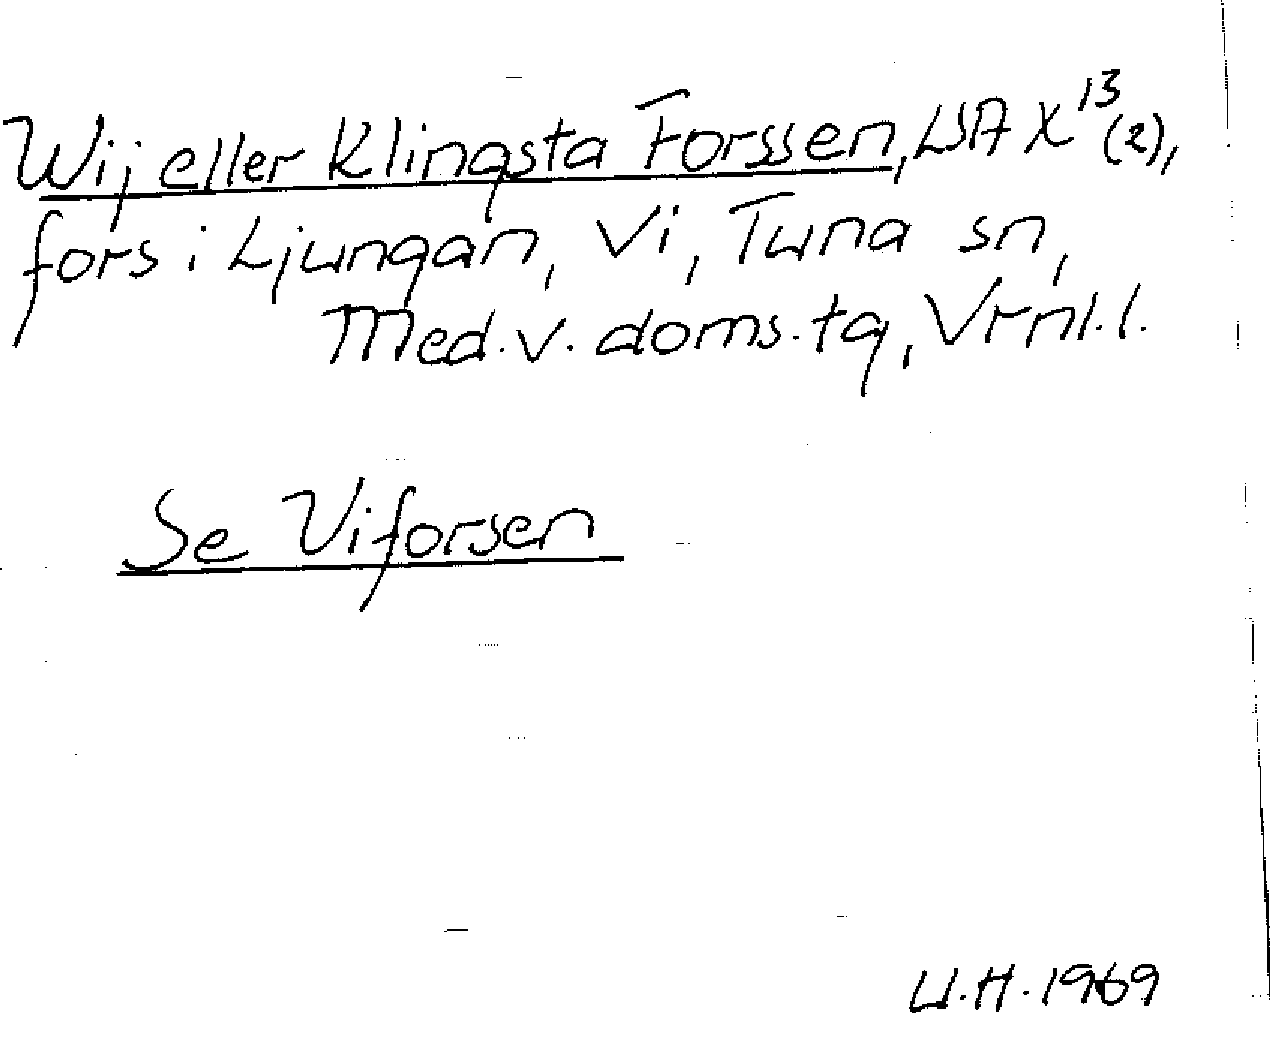 Wij eller Klingsta Forssen, LSA X 13 (2),
fors i Ljungan, Vi, Tuna sn,
Med.v. doms.tg, Vrnl.l.
Se Viforsen
U.H. 1969